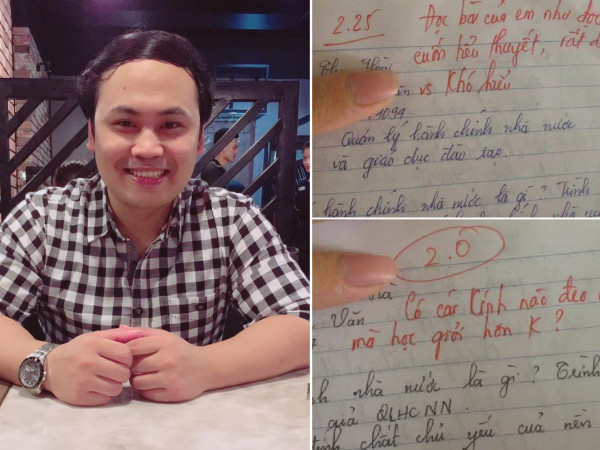 2.25 Đọc bài của em như đọc
cuốn tiểu thuyết, rất d
vs Khó hiểu
1094
Quản lý hành chính nhà nước
và giáo dục đào tạo.
hành chính nhà nước là gì? Trình
2.0
Văn Có cái Kính nào đeo
mà học giỏi hơn K?
nhà nước là gì? Trình
quả QLHCNN.
tính chất chủ yếu của nền